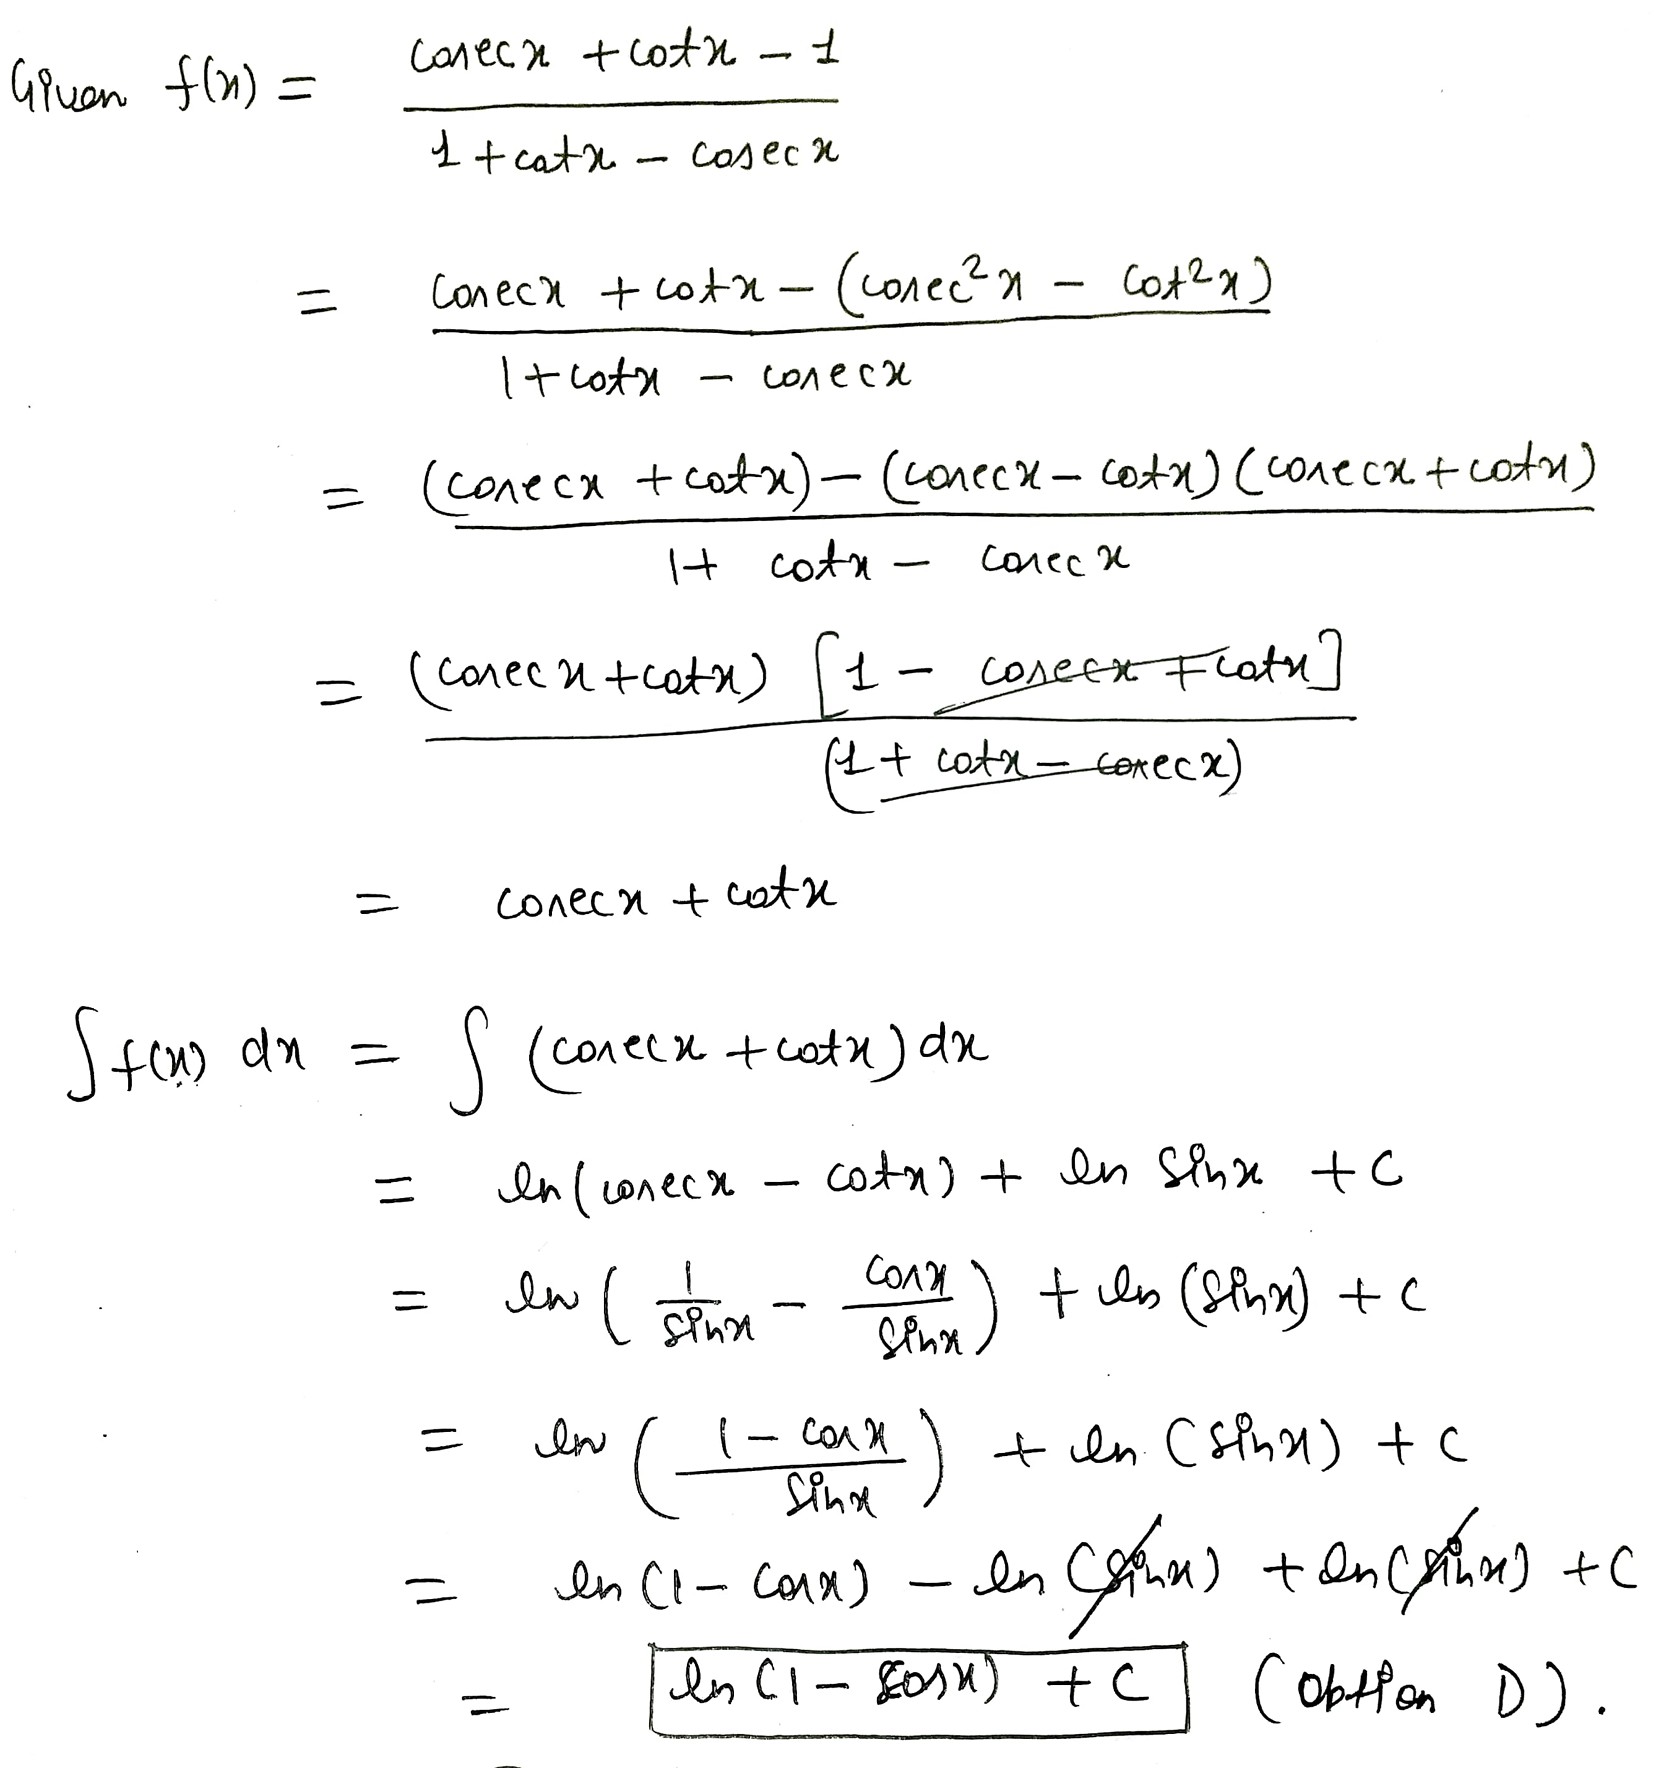 Given f(x) = (cosecx + cotx - 1) / (1 + cotx - cosecx)
= (cosecx + cotx - (cosec²x - cot²x)) / (1 + cotx - cosecx)
= ((cosecx + cotx) - (cosecx - cotx)(cosecx + cotx)) / (1 + cotx - cosecx)
= (cosecx + cotx) [1 - cosecx + cotx] / (1 + cotx - cosecx)
= cosecx + cotx
∫ f(x) dx = ∫ (cosecx + cotx) dx
= ln(cosecx - cotx) + ln sinx + c
= ln (1/sinx - cosx/sinx) + ln (sinx) + c
= ln ((1 - cosx)/sinx) + ln (sinx) + c
= ln (1 - cosx) - ln (sinx) + ln (sinx) + c
= ln (1 - cosx) + c (Option D).